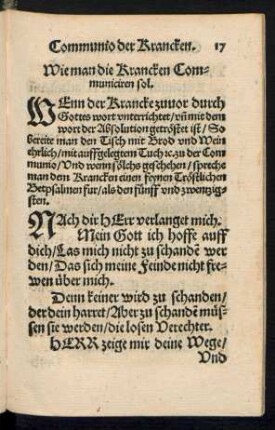 Communio der Krancken. 17
Wie man die Krancken Com-
municiren sol.
WEnn der Krancke zuvor durch
Gottes wort unterrichtet / uñ mit dem
wort der Absolution getröstet ist / So
bereite man den Tisch mit Brod und Wein
ehrlich / mit auffgelegtem Tuch ꝛc. zu der Com
munio / Und wenn sölchs geschehen / spreche
man dem Krancken einen feynen Tröstlichen
Betpsalmen fur / als den fünff und zwentzig-
sten.
NAch dir HErr verlanget mich.
Mein Gott ich hoffe auff
dich / Las mich nicht zu schandē wer
den / Das sich meine Feinde nicht fre-
wen über mich.
Denn keiner wird zu schanden /
der dein harret / Aber zu schandē müs-
sen sie werden / die losen Verechter.
HERR zeige mir deine Wege /
Und